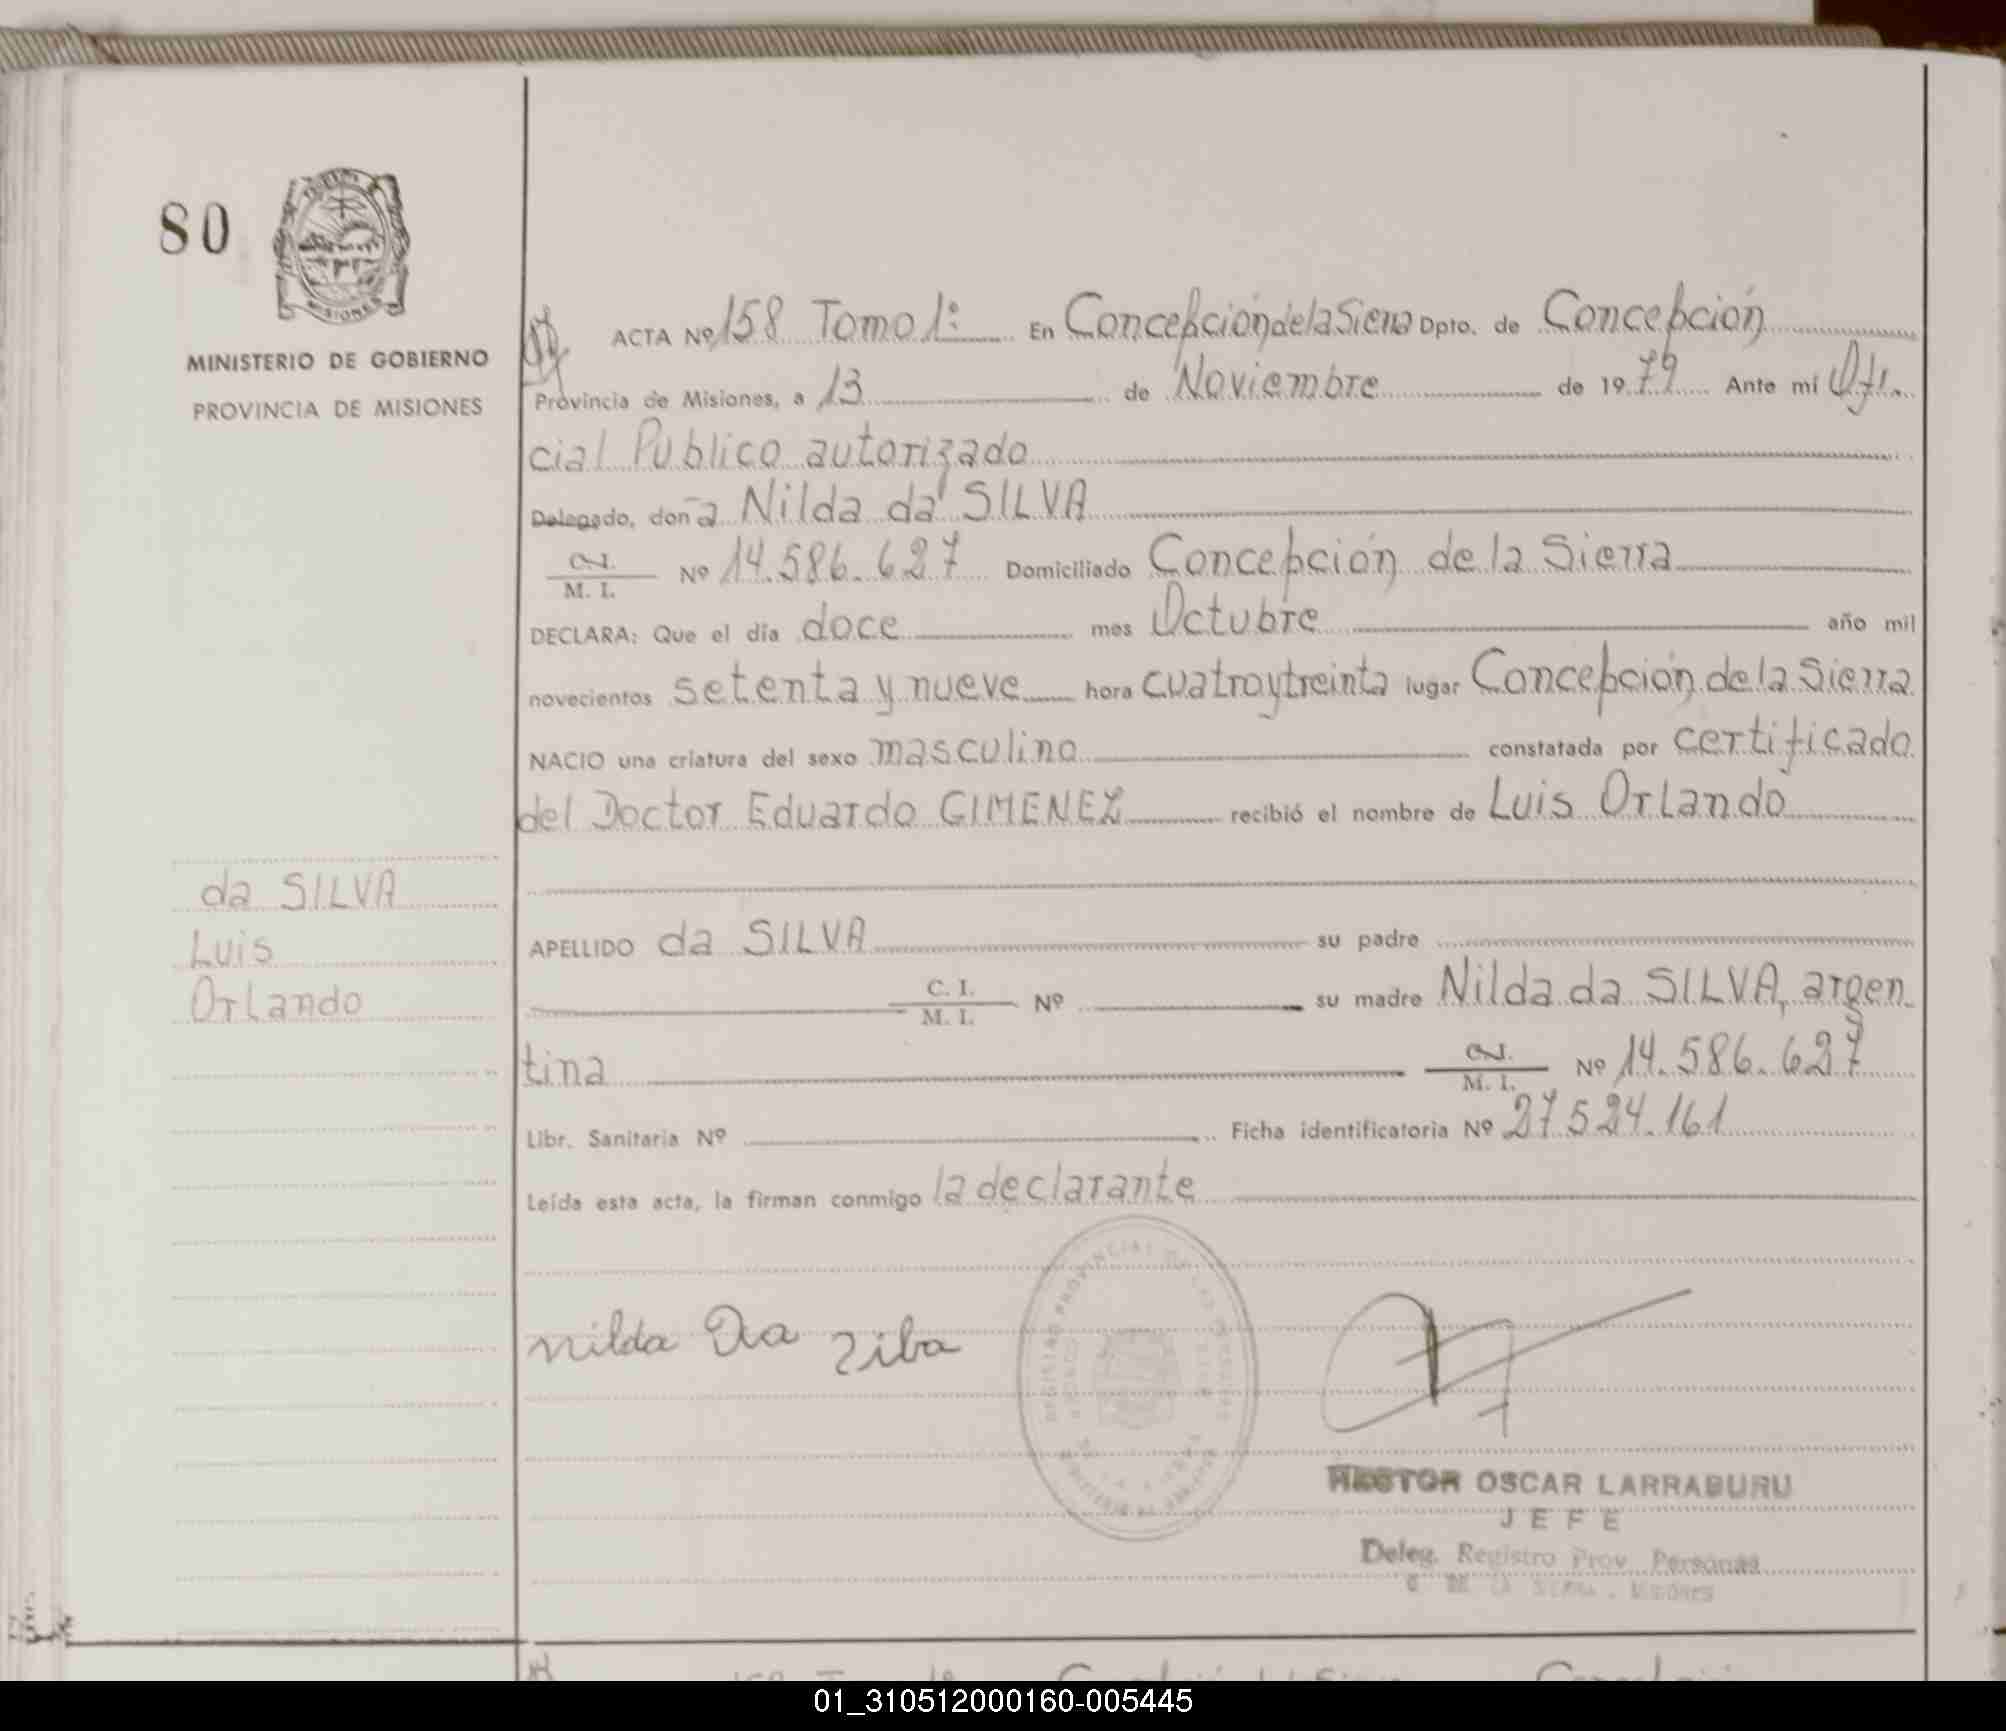 80
MINISTERIO DE GOBIERNO
PROVINCIA DE MISIONES
ACTA Nº 158 Tomo 1º En Concepción de la Sierra Dpto. de Concepción
Provincia de Misiones, a 13 de Noviembre de 1979 Ante mi Ofi-
cial Publico autorizado
Delegado, doña Nilda da SILVA
C. I.
M. I. Nº 14.586.627 Domiciliado Concepción de la Sierra
DECLARA: Que el día doce mes Octubre año mil
novecientos setenta y nueve hora cuatro y treinta lugar Concepción de la Sierra
NACIO una criatura del sexo masculino constatada por certificado
del Doctor Eduardo GIMENEZ recibió el nombre de Luis Orlando
da SILVA
Luis
Orlando
APELLIDO da SILVA su padre
C. I.
M. I. Nº su madre Nilda da SILVA, argen-
tina C. I.
M. I. Nº 14.586.627
Libr. Sanitaria Nº Ficha identificatoria Nº 27.524.161
Leída esta acta, la firman conmigo la declarante
nilda Da zilba
HECTOR OSCAR LARRABURU
JEFE
Deleg. Registro Prov. Personas
C. DE LA SIERRA - MISIONES
01_310512000160-005445